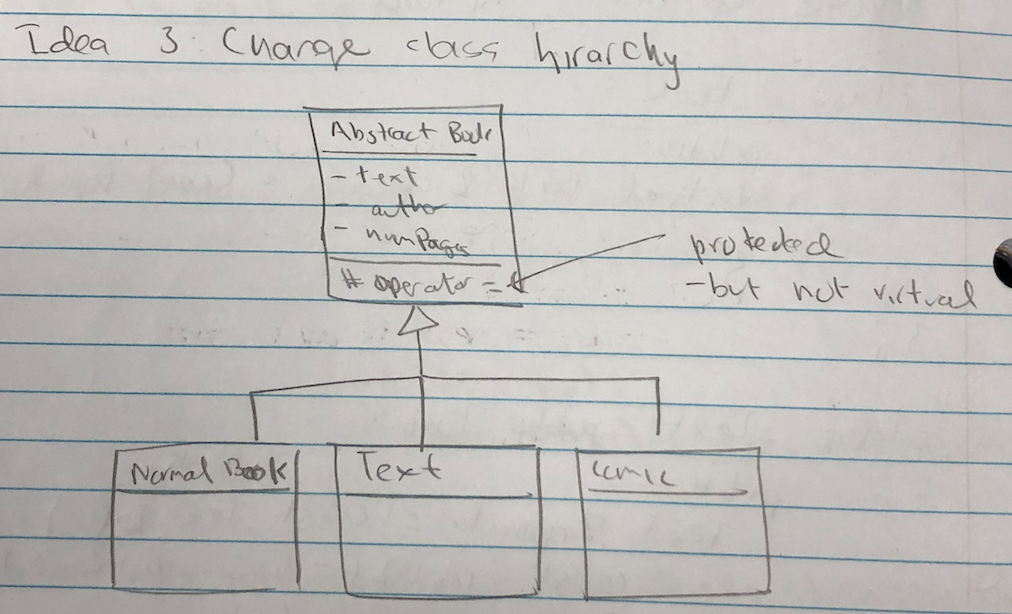 Idea 3: Change class hirarchy
Abstract Book
- text
- autho
- numPages
# operator =
protected
- but not virtual
Normal Book
Text
Comic